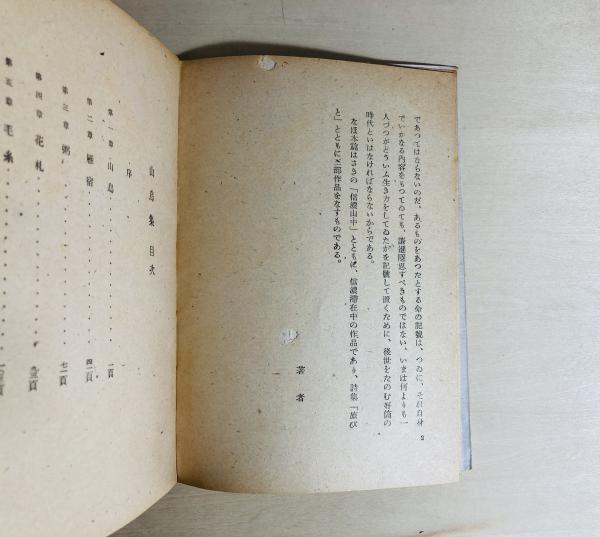 であつてはならないのだ、あるものをあつたとする命の記號は、つひに、それ自身
でいかなる内容をもつてゐても、謙遜隱忍すべきものではない、いまは何よりも一
人づつがどういふ生き方をしてゐたかを記號して置くために、後世をたのむ好箇の
時代といはなければならないからである。
なほ本篇はさきの「信濃山中」とともに、信濃滯在中の作品であり、詩集「旅び
と」とともに三部作品をなすものである。
著者
2
山鳥集目次
序
第一章 山鳥 一頁
第二章 雁宿 四二頁
第三章 粥 七一頁
第四章 花札
第五章 毛糸